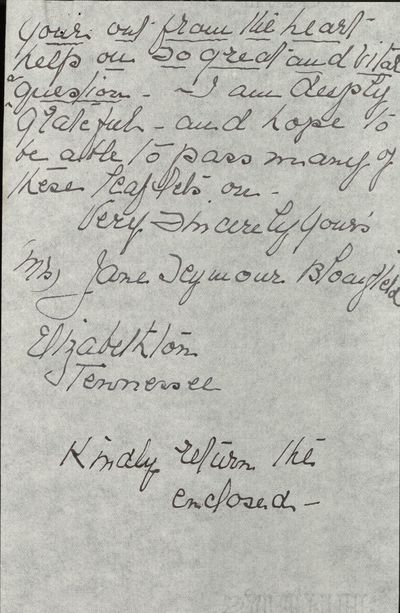 your out from the heart
help on so great and vital
a question - I am deeply
grateful - and hope to
be able to pass many of
these leaflets on -
Very Sincerely Yours
Mrs, Jane Seymour
Elizabethton
Tennessee
Kindly return the
enclosed -